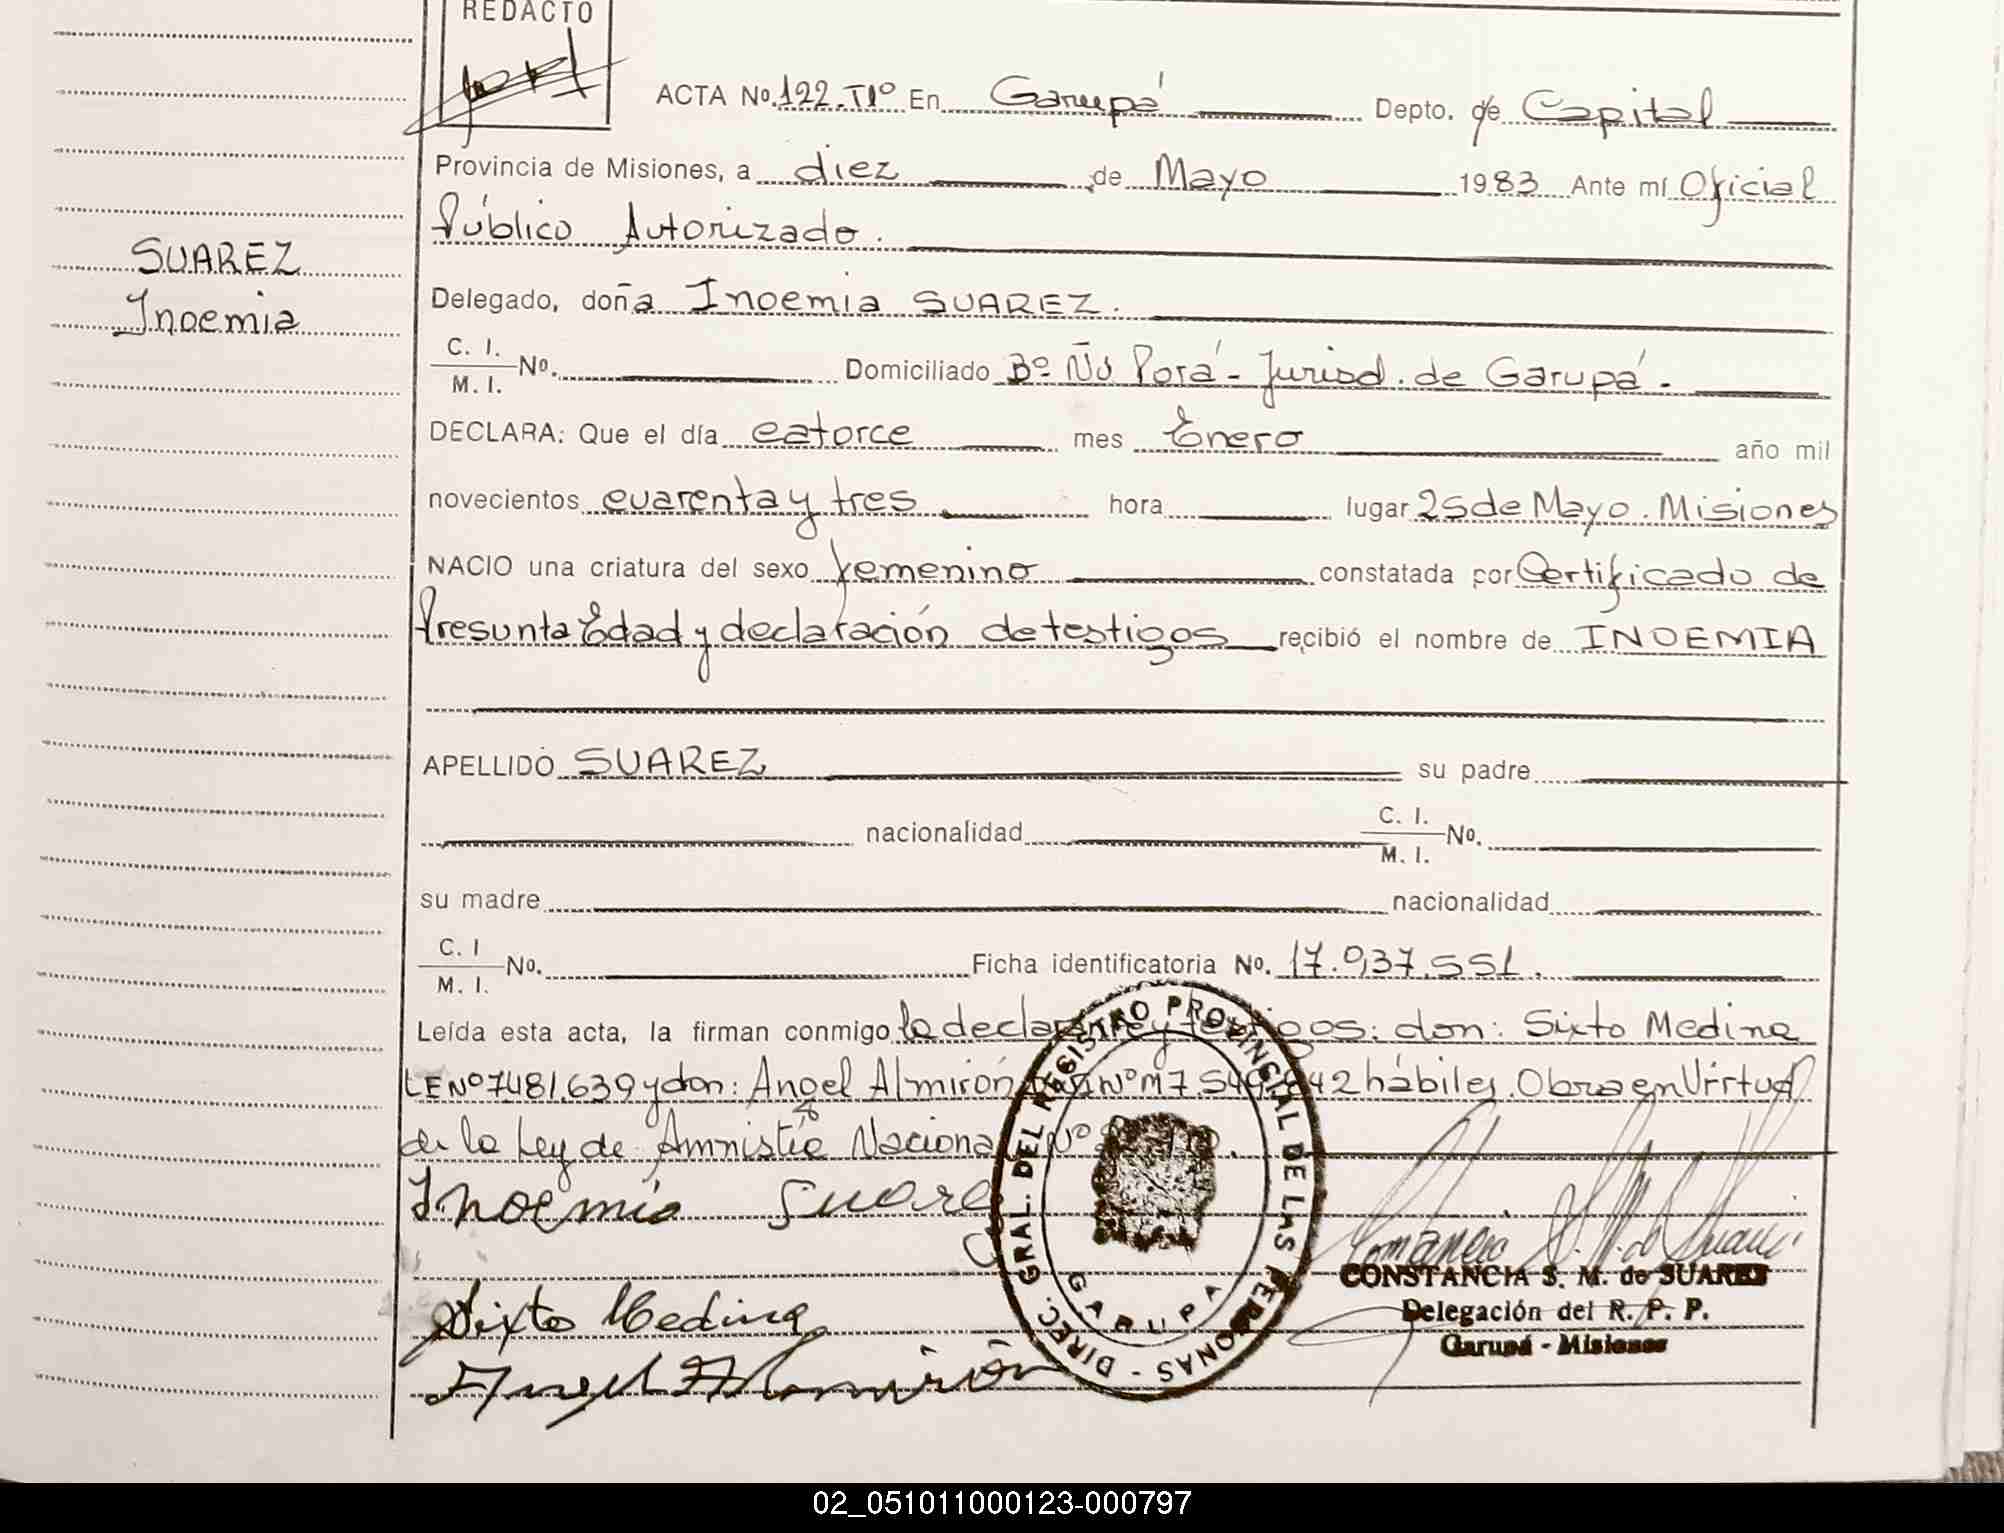 REDACTO
ACTA No. 122. Tº 1º En Garupá Depto. de Capital
Provincia de Misiones, a diez de Mayo 1983 Ante mí Oficial
Público Autorizado.
SUAREZ
Inoemia
Delegado, doña Inoemia SUAREZ.
C. I.
M. I. No. Domiciliado Bº Ñú Porá - Jurisd. de Garupá.
DECLARA: Que el día catorce mes Enero año mil
novecientos cuarenta y tres hora lugar 25 de Mayo. Misiones
NACIO una criatura del sexo femenino constatada por Certificado de
Presunta Edad y declaración de testigos recibió el nombre de INOEMIA
APELLIDO SUAREZ su padre
nacionalidad C. I.
M. I. No.
su madre nacionalidad
C. I
M. I. No. Ficha identificatoria No. 17.937.551.
Leída esta acta, la firman conmigo la declarante y testigos: don: Sixto Medina
LE Nº 7481.639 y don: Angel Almirón Nº M 7.54 42 hábiles. Obra en Virtud
de la Ley de Amnistía Nacional Nº
Inoemia Suarez
Sixto Medina
Angel Almirón
DIREC. GRAL. DEL REGISTRO PROVINCIAL DE LAS PERSONAS -
GARUPA
CONSTANCIA S. M. de SUAREZ
Delegación del R. P. P.
Garupá - Misiones
02_051011000123-000797